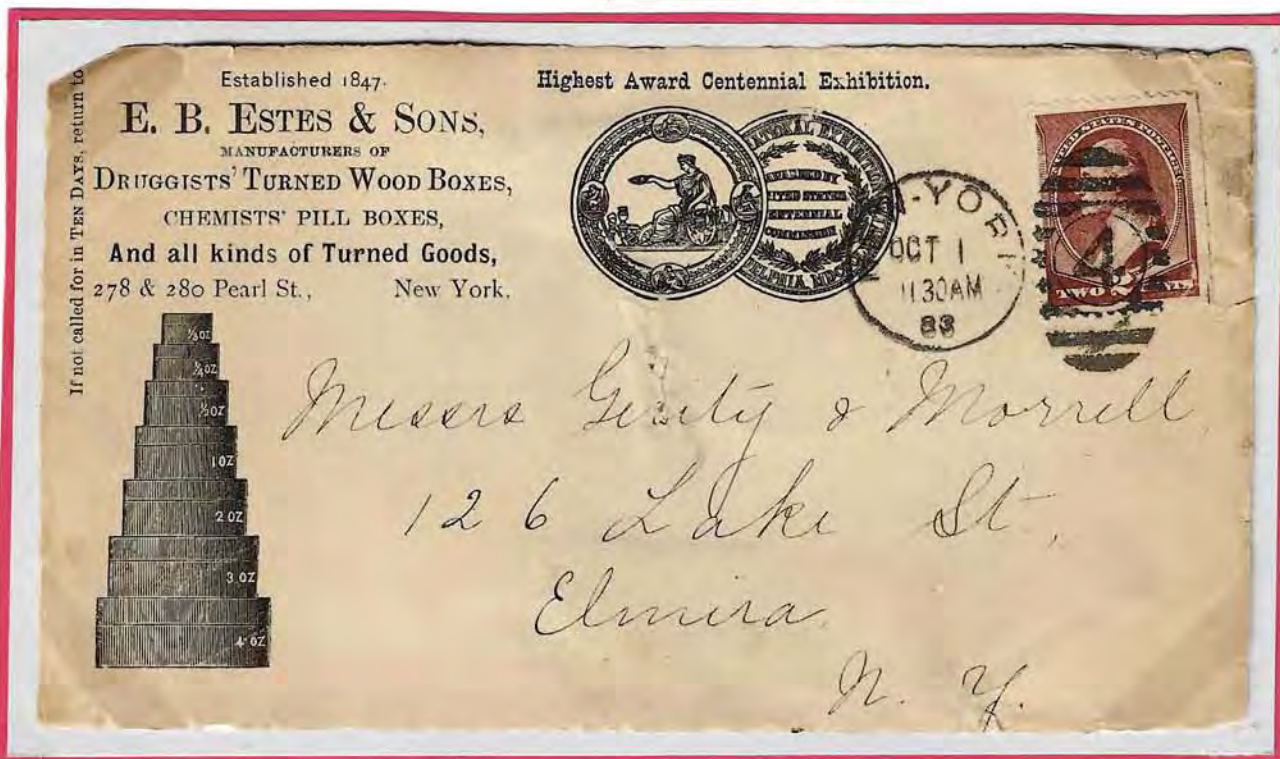 If not called for in TEN DAYS, return to
Established 1847.
E. B. ESTES & SONS,
MANUFACTURERS OF
DRUGGISTS' TURNED WOOD BOXES,
CHEMISTS' PILL BOXES,
And all kinds of Turned Goods,
278 & 280 Pearl St., New York.
Highest Award Centennial Exhibition.
UNITED STATES
CENTENNIAL
COMMISSION
OCT 1
1130AM
83
4
UNITED STATES POSTAGE
TWO 2
⅛OZ
¼OZ
½OZ
1 OZ
2 OZ
3 OZ
4 OZ
Messrs & Morrell
126 Lake St.
Elmira
N. Y.